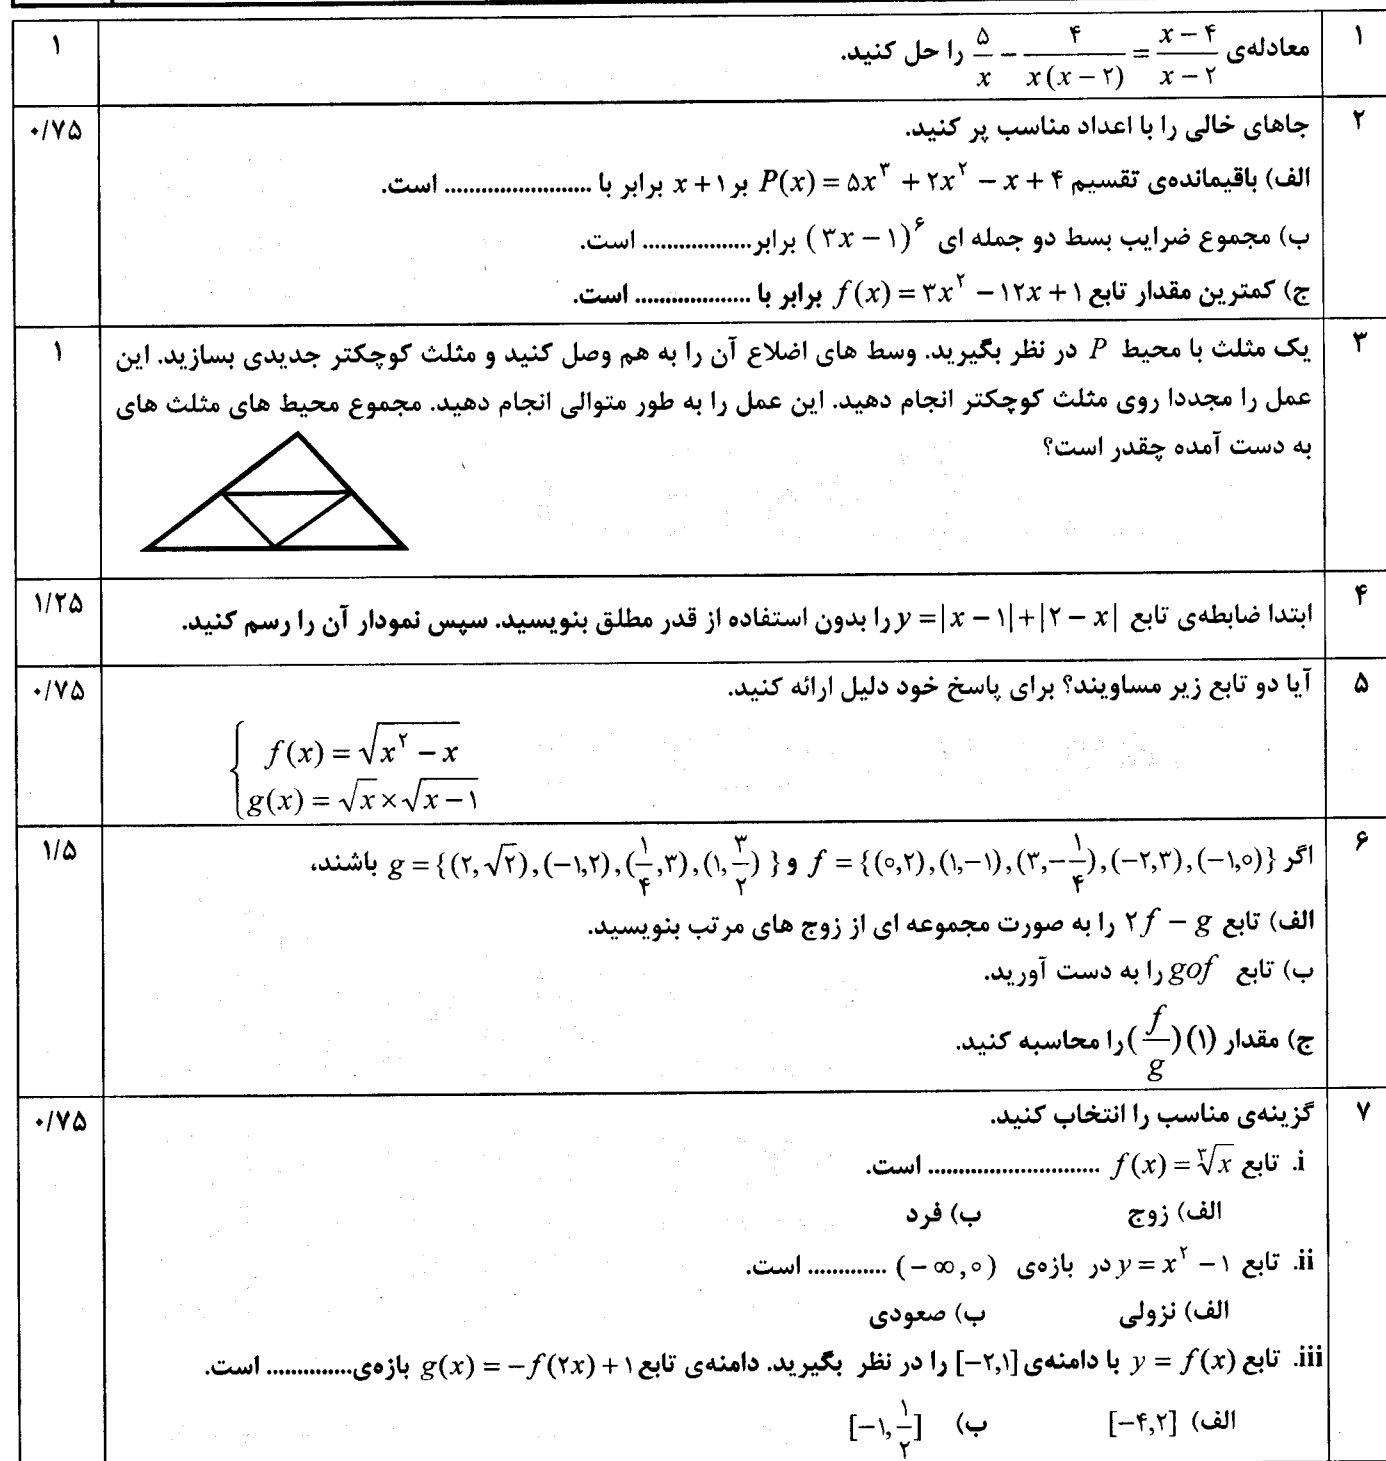 ۱ معادله‌ی ۵/x − ۴/x(x−۲) = x−۴/x−۲ را حل کنید. ۱
۲ جاهای خالی را با اعداد مناسب پر کنید. ۰/۷۵
الف) باقیمانده‌ی تقسیم P(x) = ۵x³ + ۲x² − x + ۴ بر x+۱ برابر با ........................ است.
ب) مجموع ضرایب بسط دو جمله ای (۳x − ۱)^۶ برابر.................. است.
ج) کمترین مقدار تابع f(x) = ۳x² − ۱۲x + ۱ برابر با ................... است.
۳ یک مثلث با محیط P در نظر بگیرید. وسط های اضلاع آن را به هم وصل کنید و مثلث کوچکتر جدیدی بسازید. این ۱
عمل را مجددا روی مثلث کوچکتر انجام دهید. این عمل را به طور متوالی انجام دهید. مجموع محیط های مثلث های
به دست آمده چقدر است؟
۴ ابتدا ضابطه‌ی تابع y = |x − ۱| + |۲ − x| را بدون استفاده از قدر مطلق بنویسید. سپس نمودار آن را رسم کنید. ۱/۲۵
۵ آیا دو تابع زیر مساویند؟ برای پاسخ خود دلیل ارائه کنید. ۰/۷۵
f(x) = √(x² − x)
g(x) = √x × √(x−۱)
۶ اگر f = {(۰,۲),(۱,−۱),(۳,−۱/۴),(−۲,۳),(−۱,۰)} و g = {(۲,√۲),(−۱,۲),(۱/۴,۳),(۱,۳/۲)} باشند، ۱/۵
الف) تابع ۲f − g را به صورت مجموعه ای از زوج های مرتب بنویسید.
ب) تابع gof را به دست آورید.
ج) مقدار (f/g)(۱) را محاسبه کنید.
۷ گزینه‌ی مناسب را انتخاب کنید. ۰/۷۵
i. تابع f(x) = ³√x ............................ است.
الف) زوج ب) فرد
ii. تابع y = x² − ۱ در بازه‌ی (−∞,۰) ............. است.
الف) نزولی ب) صعودی
iii. تابع y = f(x) با دامنه‌ی [−۲,۱] را در نظر بگیرید. دامنه‌ی تابع g(x) = −f(۲x) + ۱ بازه‌ی.............. است.
الف) [−۴,۲] ب) [−۱,۱/۲]